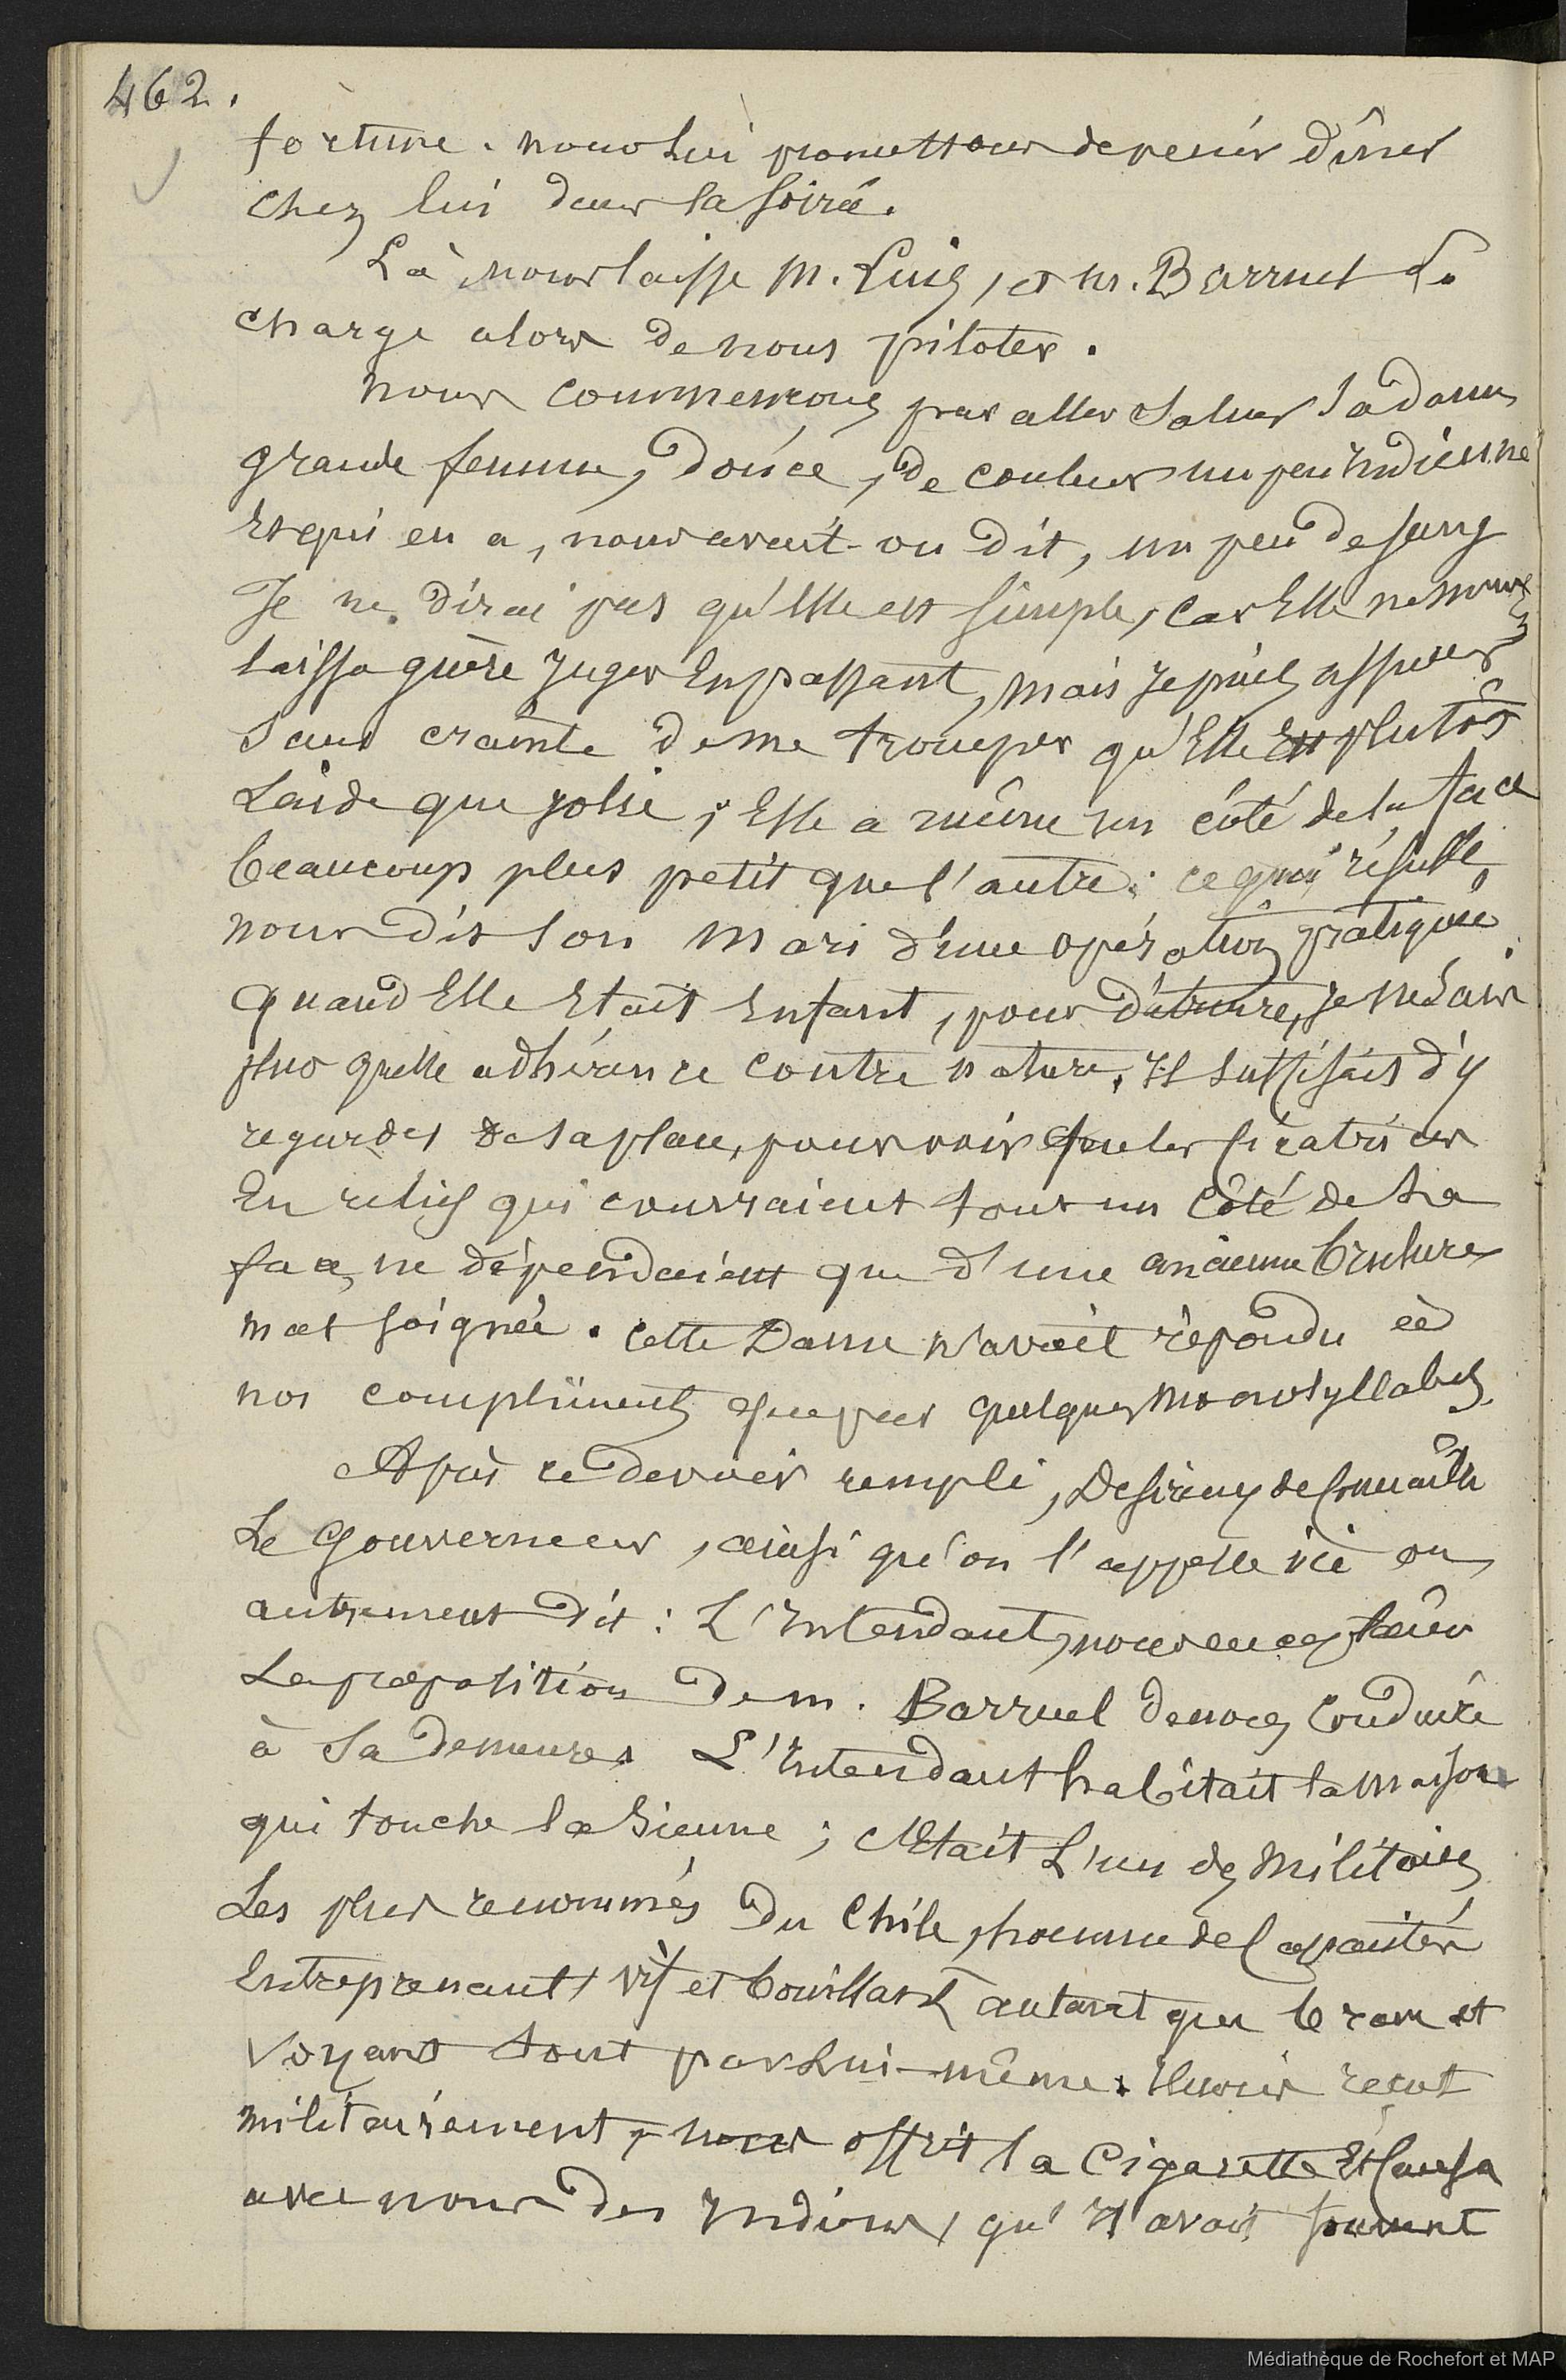 462.
fortune. nous lui promettons de venir dîner
chez lui dans la soirée.
Là nous laisse M. Luig, et M. Barruel se
charge alors de nous piloter.
nous commençons par aller saluer sa dame
grande femme, douce, de couleur un peu indienne
et qui en a, nous avait-on dit, un peu de sang
Je ne dirai pas qu'elle est simple, car Elle ne nous
laissa guère juger En passant, mais je puis assurer
sans crainte de me tromper qu'Elle Est plutôt
Laide que jolie; Elle a même un côté de la face
beaucoup plus petit que l'autre; ce qui résulte,
nous dit son mari d'une opération pratiquée
quand Elle Etait Enfant, pour détruire, je ne sais
plus quelle adhérence contre nature. Il suffisait d'y
regarder de sa place, pour voir que les cicatrices
En relief qui couvraient tout un côté de sa
face, ne dépendaient que d'une ancienne brulure
mal soignée. cette Dame n'avait répondu à
nos compliments que par quelques monosyllabes.
Après ce devoir rempli, Desireux de connaître
Le Gouverneur, ainsi qu'on l'appelle ici ou
autrement dit: L'Intendant, nous acceptâmes
La proposition de M. Barruel de nous conduire
à sa demeure. L'Intendant habitait la maison
qui touche la sienne; c'Etait L'un des militaires
Les plus renommés du Chile, homme de capacités
Entreprenant, vif et bouillant autant que brave et
voyant tout par Lui-même. Il nous reçut
militairement, nous offrit la cigarette Et causa
avec nous des Indiens, qu'Il avait souvent
Médiathèque de Rochefort et MAP